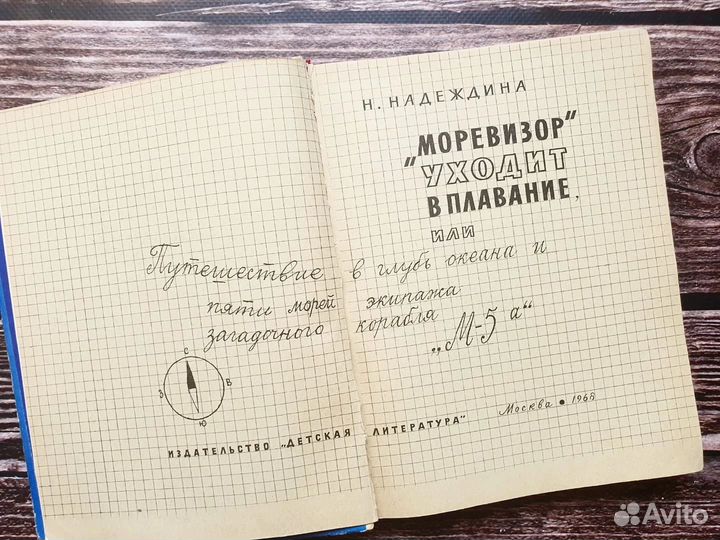 Н. НАДЕЖДИНА
„МОРЕВИЗОР"
УХОДИТ
В ПЛАВАНИЕ,
ИЛИ
Путешествие в глубь океана и
пяти морей экипажа
загадочного корабля
„М-5 а"
С
З В
Ю
ИЗДАТЕЛЬСТВО „ДЕТСКАЯ ЛИТЕРАТУРА"
Москва • 1968
Avito